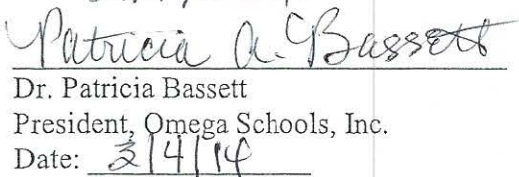 Patricia A. Bassett
Dr. Patricia Bassett
President, Omega Schools, Inc.
Date: 2/4/14